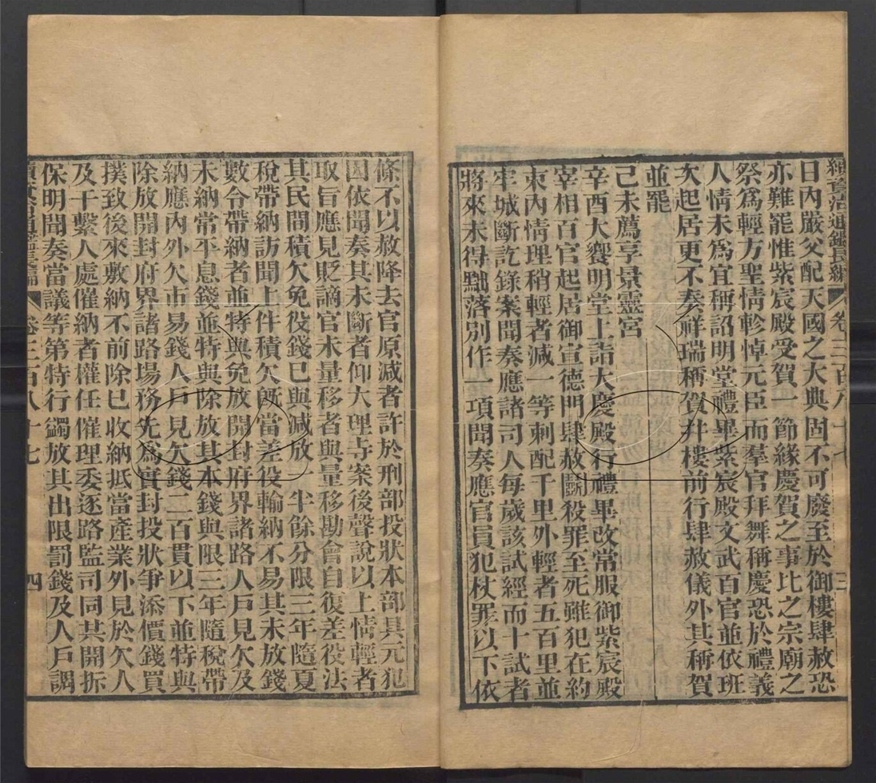 續資治通鑑長編 卷三百八十七 三
日內嚴父配天國之大典固不可廢至於御樓肆赦恐
亦難罷惟紫宸殿受賀一節緣慶賀之事比之宗廟之
祭爲輕方聖情軫悼元臣而羣官拜舞稱慶恐於禮義
人情未爲宜稱詔明堂禮畢紫宸殿文武百官並依班
次起居更不奏祥瑞稱賀幷樓前行肆赦儀外其稱賀
並罷
己未薦享景靈宮
辛酉大饗明堂上詣大慶殿行禮畢改常服御紫宸殿
宰相百官起居御宣德門肆赦鬭殺罪至死雖犯在約
束內情理稍輕者減一等刺配千里外輕者五百里並
牢城斷訖錄案聞奏應諸司人每歲該試經而十試者
將來未得黜落別作一項聞奏應官員犯杖罪以下依
條不以赦降去官原減者許於刑部投狀本部具元犯
因依聞奏其未斷者仰大理寺案後聲說以上情輕者
取旨應見貶謫官未量移者與量移勘會自復差役法
其民間積欠免役錢已與減放一半餘分限三年隨夏
稅帶納訪聞上件積欠旣當差役輸納不易其未放錢
數令帶納者並特與免放開封府界諸路人戶見欠及
未納常平息錢並特與除放其本錢與限三年隨稅帶
納應內外欠市易錢人戶見欠錢二百貫以下並特與
除放開封府界諸路場務先爲實封投狀爭添價錢買
撲致後來敷納不前除已收納抵當產業外見於欠人
及干繫人處催納者權任催理委逐路監司同共開拆
保明聞奏當議等第特行蠲放其出限罰錢及人戶調
續資治通鑑長編 卷三百八十七 四